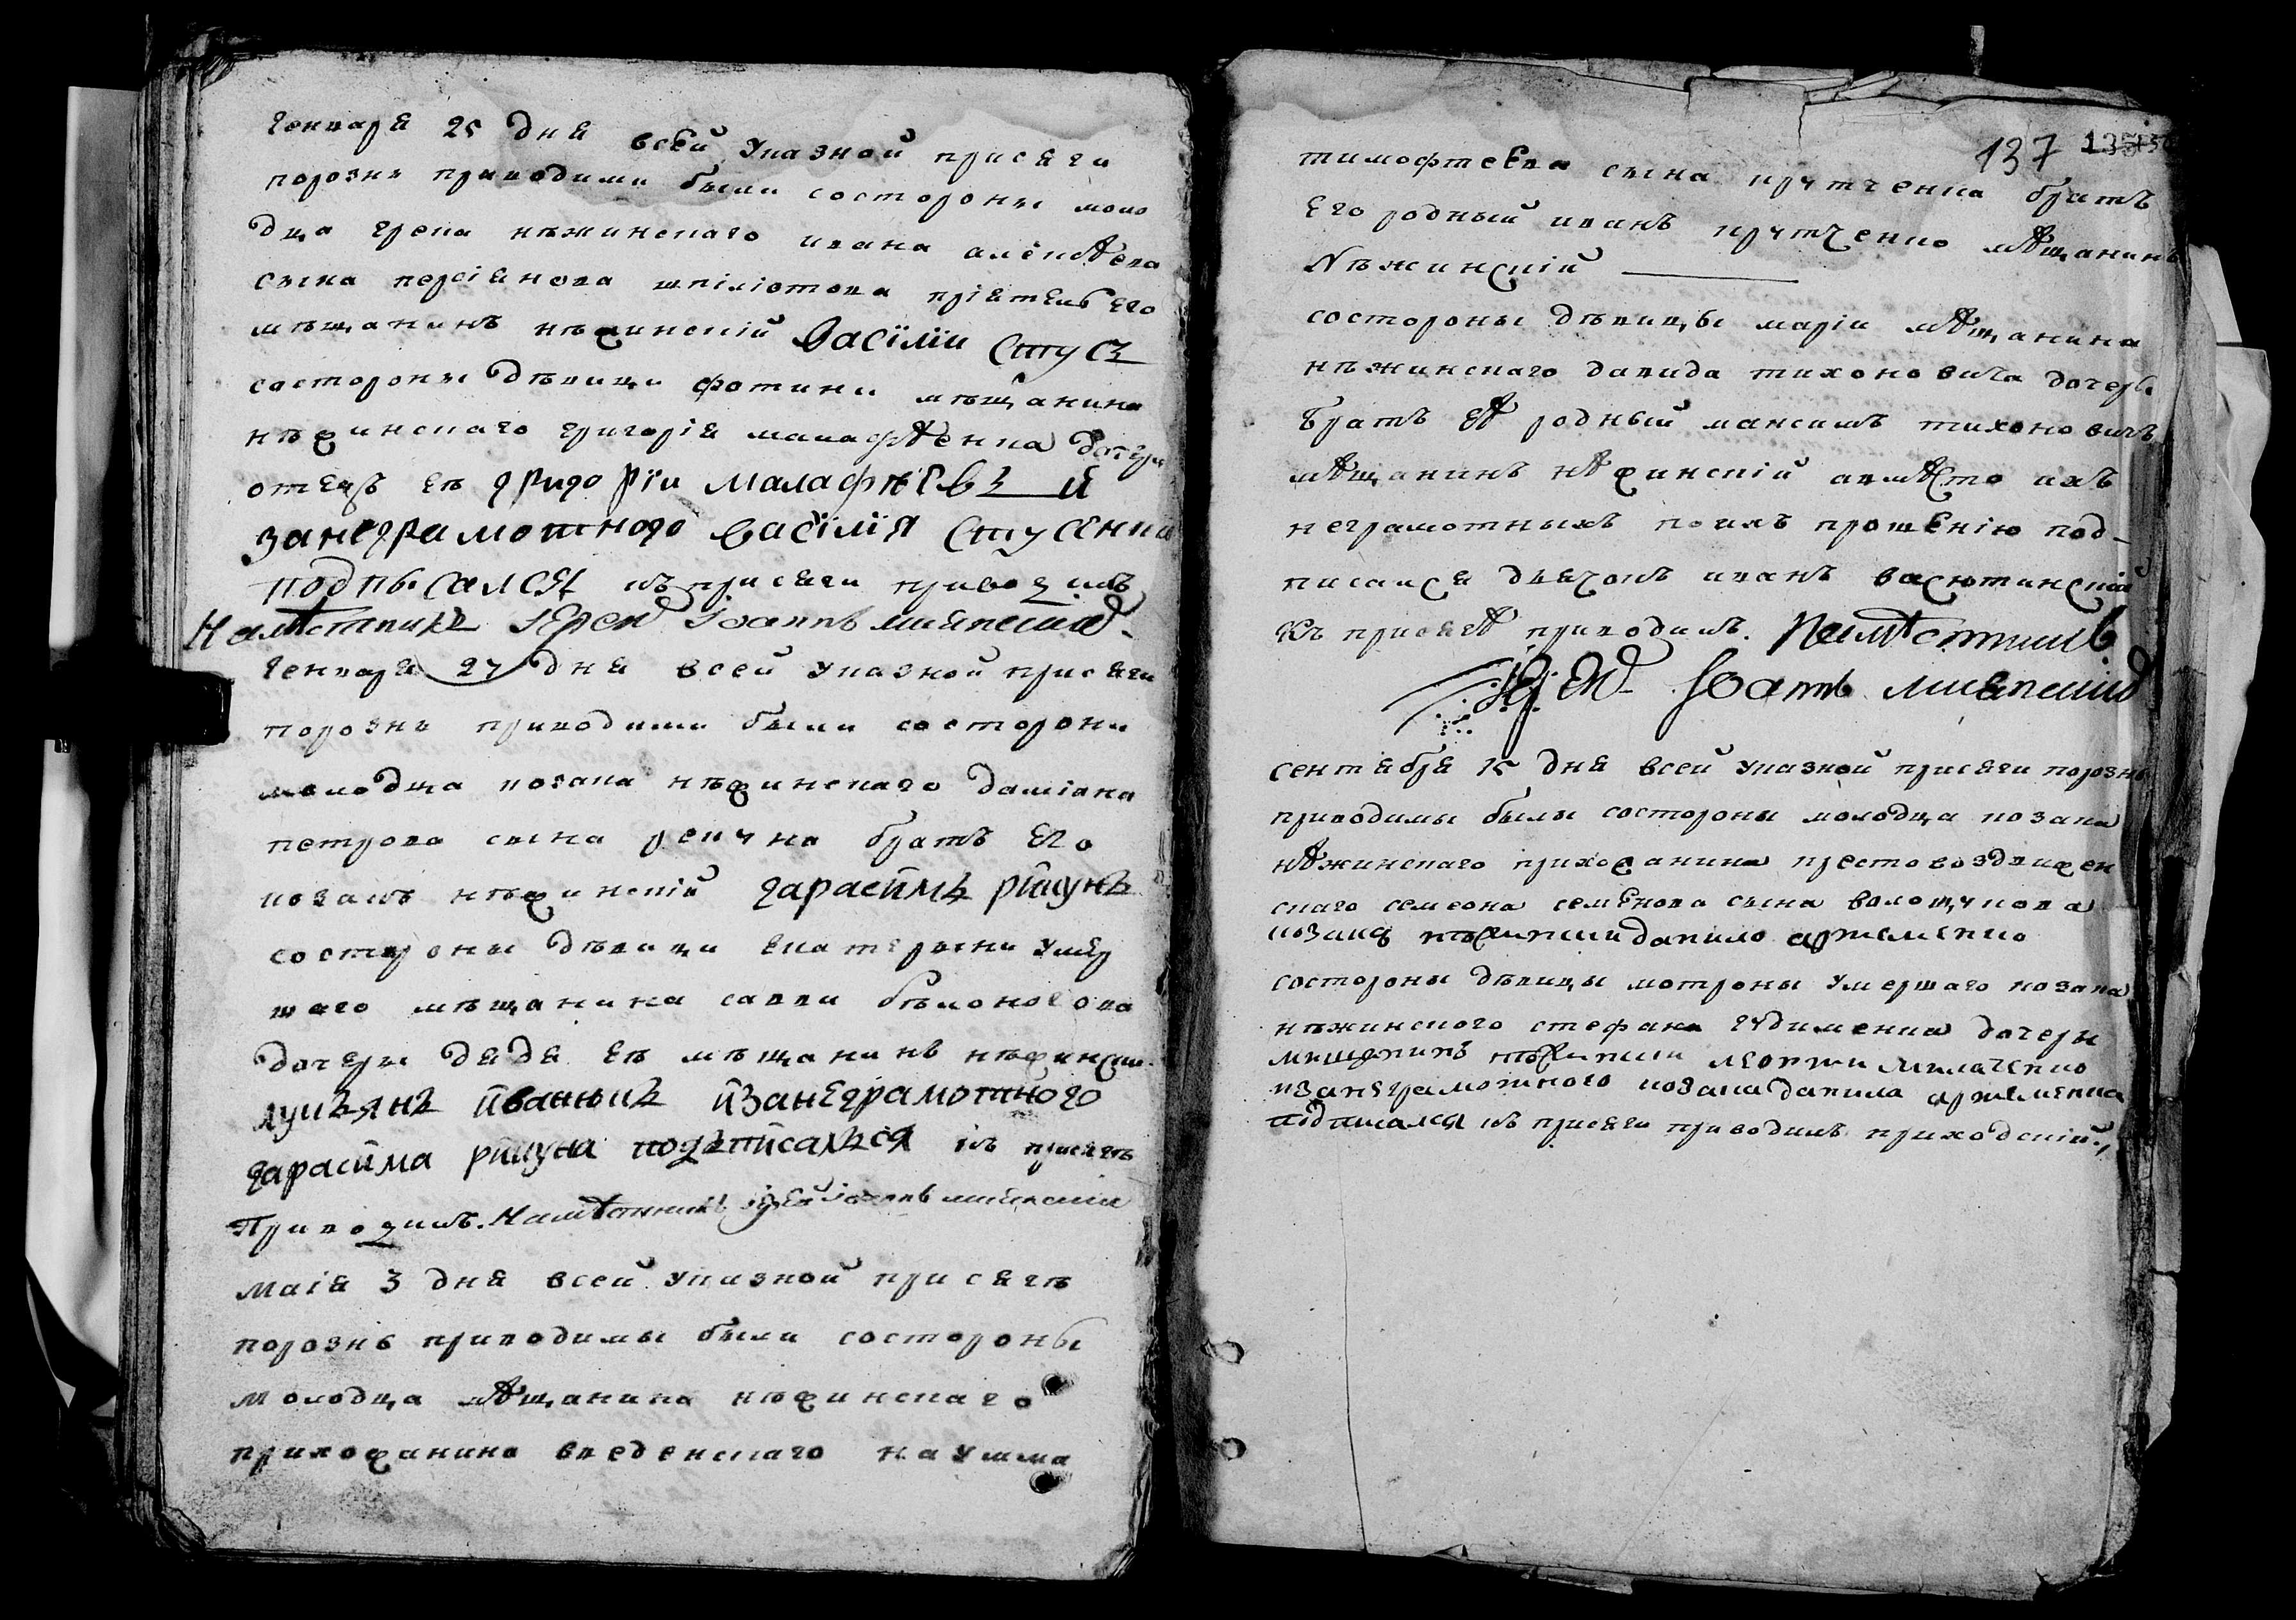 Генваря 25 дня всей Указной присяги
порознь приводими были состороны моло
дца грека нѣжинскаго ивана алеѯѣева
сына персіянова шпиліотова пріятель его
мѣщанинъ нѣжинскій Васілій Стусъ
состороны дѣвици фотини мѣщанина
нѣжинскаго григорія малафѣенка дочери
отецъ еѣ григорій малафѣевъ й
занеграмотного васілія Стусенка
подписался къ присяги приводилъ
Намѣстникъ Іерей Іоаннъ
Генваря 27 дня всей Указной присяги
порознь приводими были состорони
молодца козака нѣжинскаго даміана
петрова сына репуна братъ его
козакъ нѣжинскій гарасимъ рипунъ
состороны дѣвици екатерыни Умер
шаго мѣщанина савви бѣлоногова
дочеры дядя еѣ мѣщанинъ нѣжинскій
лукъянъ йванъ йзанеграмотного
гарасима рипуна подъписалъся къ присягѣ
Приводилъ. Намѣстникъ Іерей Іоаннъ
маія 3 дня всей Указной присягѣ
порознь приводимы были состороны
молодца мѣщанина нѣжинскаго
прихожанина введенскаго наУма
137
тимофтеева сына крутченка братъ
Его родный иванъ крутченко мѣщанинъ
Нѣжинскій
состороны дѣвицы маріи мѣщанина
нѣжинскаго давида тихоновича дочери
братъ еѣ родный максимъ тихоновичъ
мѣщанинъ нѣжинскій авмѣсто ихъ
неграмотныхъ поихъ прошенію под-
писалься дьячокъ иванъ васютинскій
Къ присягѣ приводилъ. Намѣстникъ
Іерей Іоаннъ
сентября 15 дня всей Указной присяги порознь
приводимы былы состороны молодца козака
нѣжинскаго прихожанина крестовоздвижен
скаго семеона семенова сына волощукова
козакъ нѣжинский данило артеменко
состороны дѣвицы мотроны Умершаго козака
нѣжинского стефана гудименка дочеры
мищанинъ нѣжинский
изанеграмотного козака данила артеменка
подписался къ присяги приводилъ приходскій